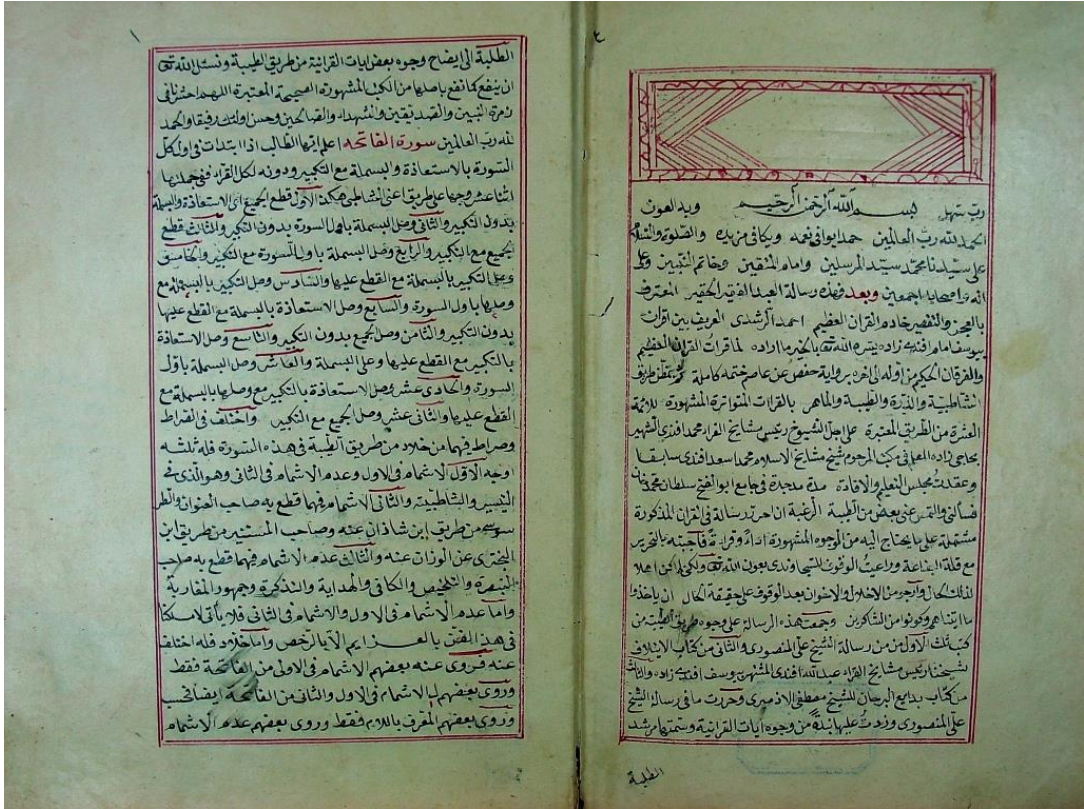 ٤
رب سهل بسم الله الرحمن الرحيم وبه العون
الحمد لله رب العالمين حمدا يوافى نعمه ويكافى مزيده والصلوة والسلام
على سيدنا محمد سيد المرسلين وامام المتقين وخاتم النبيين وعلى
اله واصحابه اجمعين وبعد فهذه رسالة العبد الفقير الحقير المعترف
بالعجز والتقصير خادم القران العظيم احمد الرشدى العريف بين اقرانه
بيوسف امام افندى زاده يسره الله تع بالخير ما اراده لما قرات القران العظيم
والفرقان الحكيم من اوله الى اخره برواية حفص عن عاصم ختمة كاملة طريق
الشاطبية والدرة والطيبة والماهر بالقراات المتواترة المشهورة للائمة
العشرة من الطريق المعتبرة على اجل الشيوخ رئيس مشايخ القراء محمد افندى الشهير
بحاجى زاده المعلم فى مكتب المرحوم شيخ مشايخ الاسلام محمد سعد افندى سابقا
وعقدت مجلس التعليم والافادة مدة مديدة فى جامع ابو الفتح سلطان محمد خان
فسألنى والتمس عنى بعض من الطلبة الرغبة ان احرر رسالة فى القران المذكورة
مشتملة على ما يحتاج اليه من الوجوه المشهورة اداء وقراءة فاجبته بالتحرير
مع قلة البضاعة وراعيت الوقوف للسجاوندى بعون الله تع ولكن لم اكن اهلا
لذلك الحال وارجو من الاخلاء والاخوان بعد الوقوف على حقيقة الحال ان ياخذوا
ما اتيناهم وكونوا من الشاكرين وجمعت هذه الرسالة على وجوه طريق الطيبة من
كتب ثلث الاول من رسالة الشيخ على المنصورى والثانى من كتاب الايتلاف
لشيخنا رئيس مشايخ القراء عبد الله افندى المشتهر بيوسف افندى زاده والثالث
من كتاب بدايع البرهان للشيخ مصطفى الازميرى وحررت ما فى رسالة الشيخ
على المنصورى وزدت عليها نبذة من وجوه ايات القرانية وسميتها مرشد
الطلبة
١
الطلبة الى ايضاح وجوه بعض ايات القرانية من طريق الطيبة ونسئل الله تع
ان ينفع كما نفع باصلها من الكتب المشهورة الصحيحة المعتبرة اللهم احشرنا فى
زمرة النبيين والصديقين والشهداء والصالحين وحسن اولئك رفيقا والحمد
لله رب العالمين سورة الفاتحه اعلم ايها الطالب اذا ابتدات فى اول كل
السورة بالاستعاذة والبسملة مع التكبير ودونه لكل القراء فى جملتها
اثنا عشر وجها على طريق اعنى الشاطبى هكذا الاول قطع الجميع اى الاستعاذة والبسملة
بدون التكبير والثانى وصل البسملة باول السورة بدون التكبير والثالث قطع
الجميع مع التكبير والرابع وصل البسملة باول السورة مع التكبير والخامس
وصل التكبير بالبسملة مع القطع عليها والسادس وصل التكبير بالبسملة مع
وصلها باول السورة والسابع وصل الاستعاذة بالبسملة مع القطع عليها
بدون التكبير والثامن وصل الجميع بدون التكبير والتاسع وصل الاستعاذة
بالتكبير مع القطع عليها وعلى البسملة والعاشر وصل البسملة باول
السورة والحادى عشر وصل الاستعاذة بالتكبير مع وصلها بالبسملة مع
القطع عليها والثانى عشر وصل الجميع مع التكبير واختلف فى الصراط
وصراط فيهما من خلاد من طريق الطيبة فى هذه السورة فله ثلثه
اوجه الاول الاشمام فى الاول وعدم الاشمام فى الثانى وهو الذى فى
التيسير والشاطبية والثانى الاشمام فيهما قطع به صاحب العنوان والطر
سوسى من طريق ابن شاذان عنه وصاحب المستنير من طريق ابن
البخترى عن الوزان عنه والثالث عدم الاشمام فيهما قطع به صاحب
التبصرة والتلخيص والكافى والهداية والتذكرة وجمهور المغاربة
واما عدم الاشمام فى الاول والاشمام فى الثانى فلا يأتى
فى هذين بالعزايم الا بالرخص واما خلاد فله اختلف
عنه فروى عنه بعضهم الاشمام فى الاولى من الفاتحة فقط
وروى بعضهم الاشمام فى الاول والثانى من الفاتحة ايضا فحسب
وروى بعضهم المعرف باللام فقط وروى بعضهم عدم الاشمام